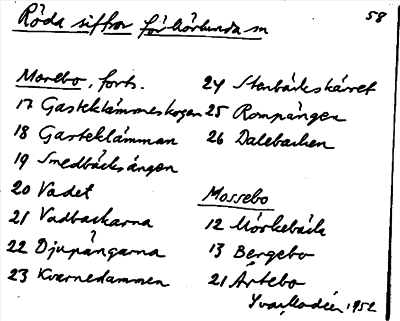 58
Röda siffror för Hörlunda sn
Morebo, forts.
17 Gasteklämmeskogen
18 Gasteklämman
19 Smedbäcksängen
20 Vadet
21 Vadbackarna
22 Djupängarna
23 Kvarnedammen
24 Stenbäckskärret
25 Rompängen
26 Dalebacken
Mossebo
12 Mörkebäck
13 Bergebo
21 Ärtebo
Ivar Modéer 1952